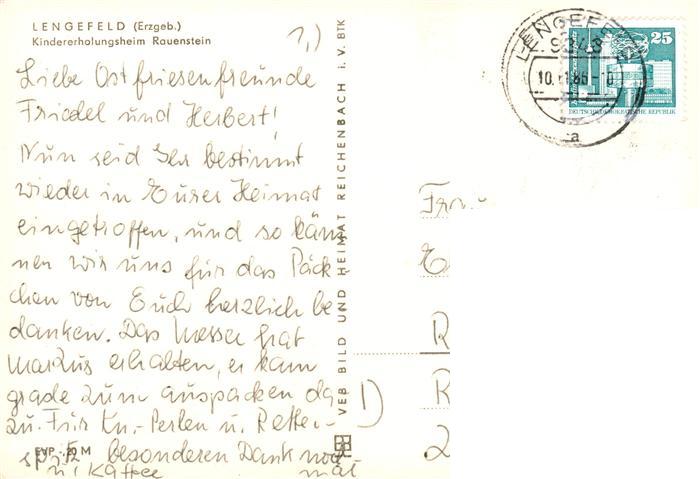 LENGEFELD (Erzgeb.)
Kindererholungsheim Rauenstein
1,)
Liebe Ostfriesenfreunde
Friedel und Herbert!
Nun seid Ihr bestimmt
wieder in Eurer Heimat
eingetroffen, und so kön
nen wir uns für das Päck
chen von Euch herzlich be
danken. Das Messer hat
Markus erhalten, er kam
grade zum auspacken da
zu. Für
Perlen u. Retter-
spitz besonderen Dank noch
u. Kaffee mal
EVP -,20 M
VEB BILD UND HEIMAT REICHENBACH i. V. BTK
LENGEFELD
9348
10.11.86
a
25
DEUTSCHE DEMOKRATISCHE REPUBLIK
1)
E
R
R
2